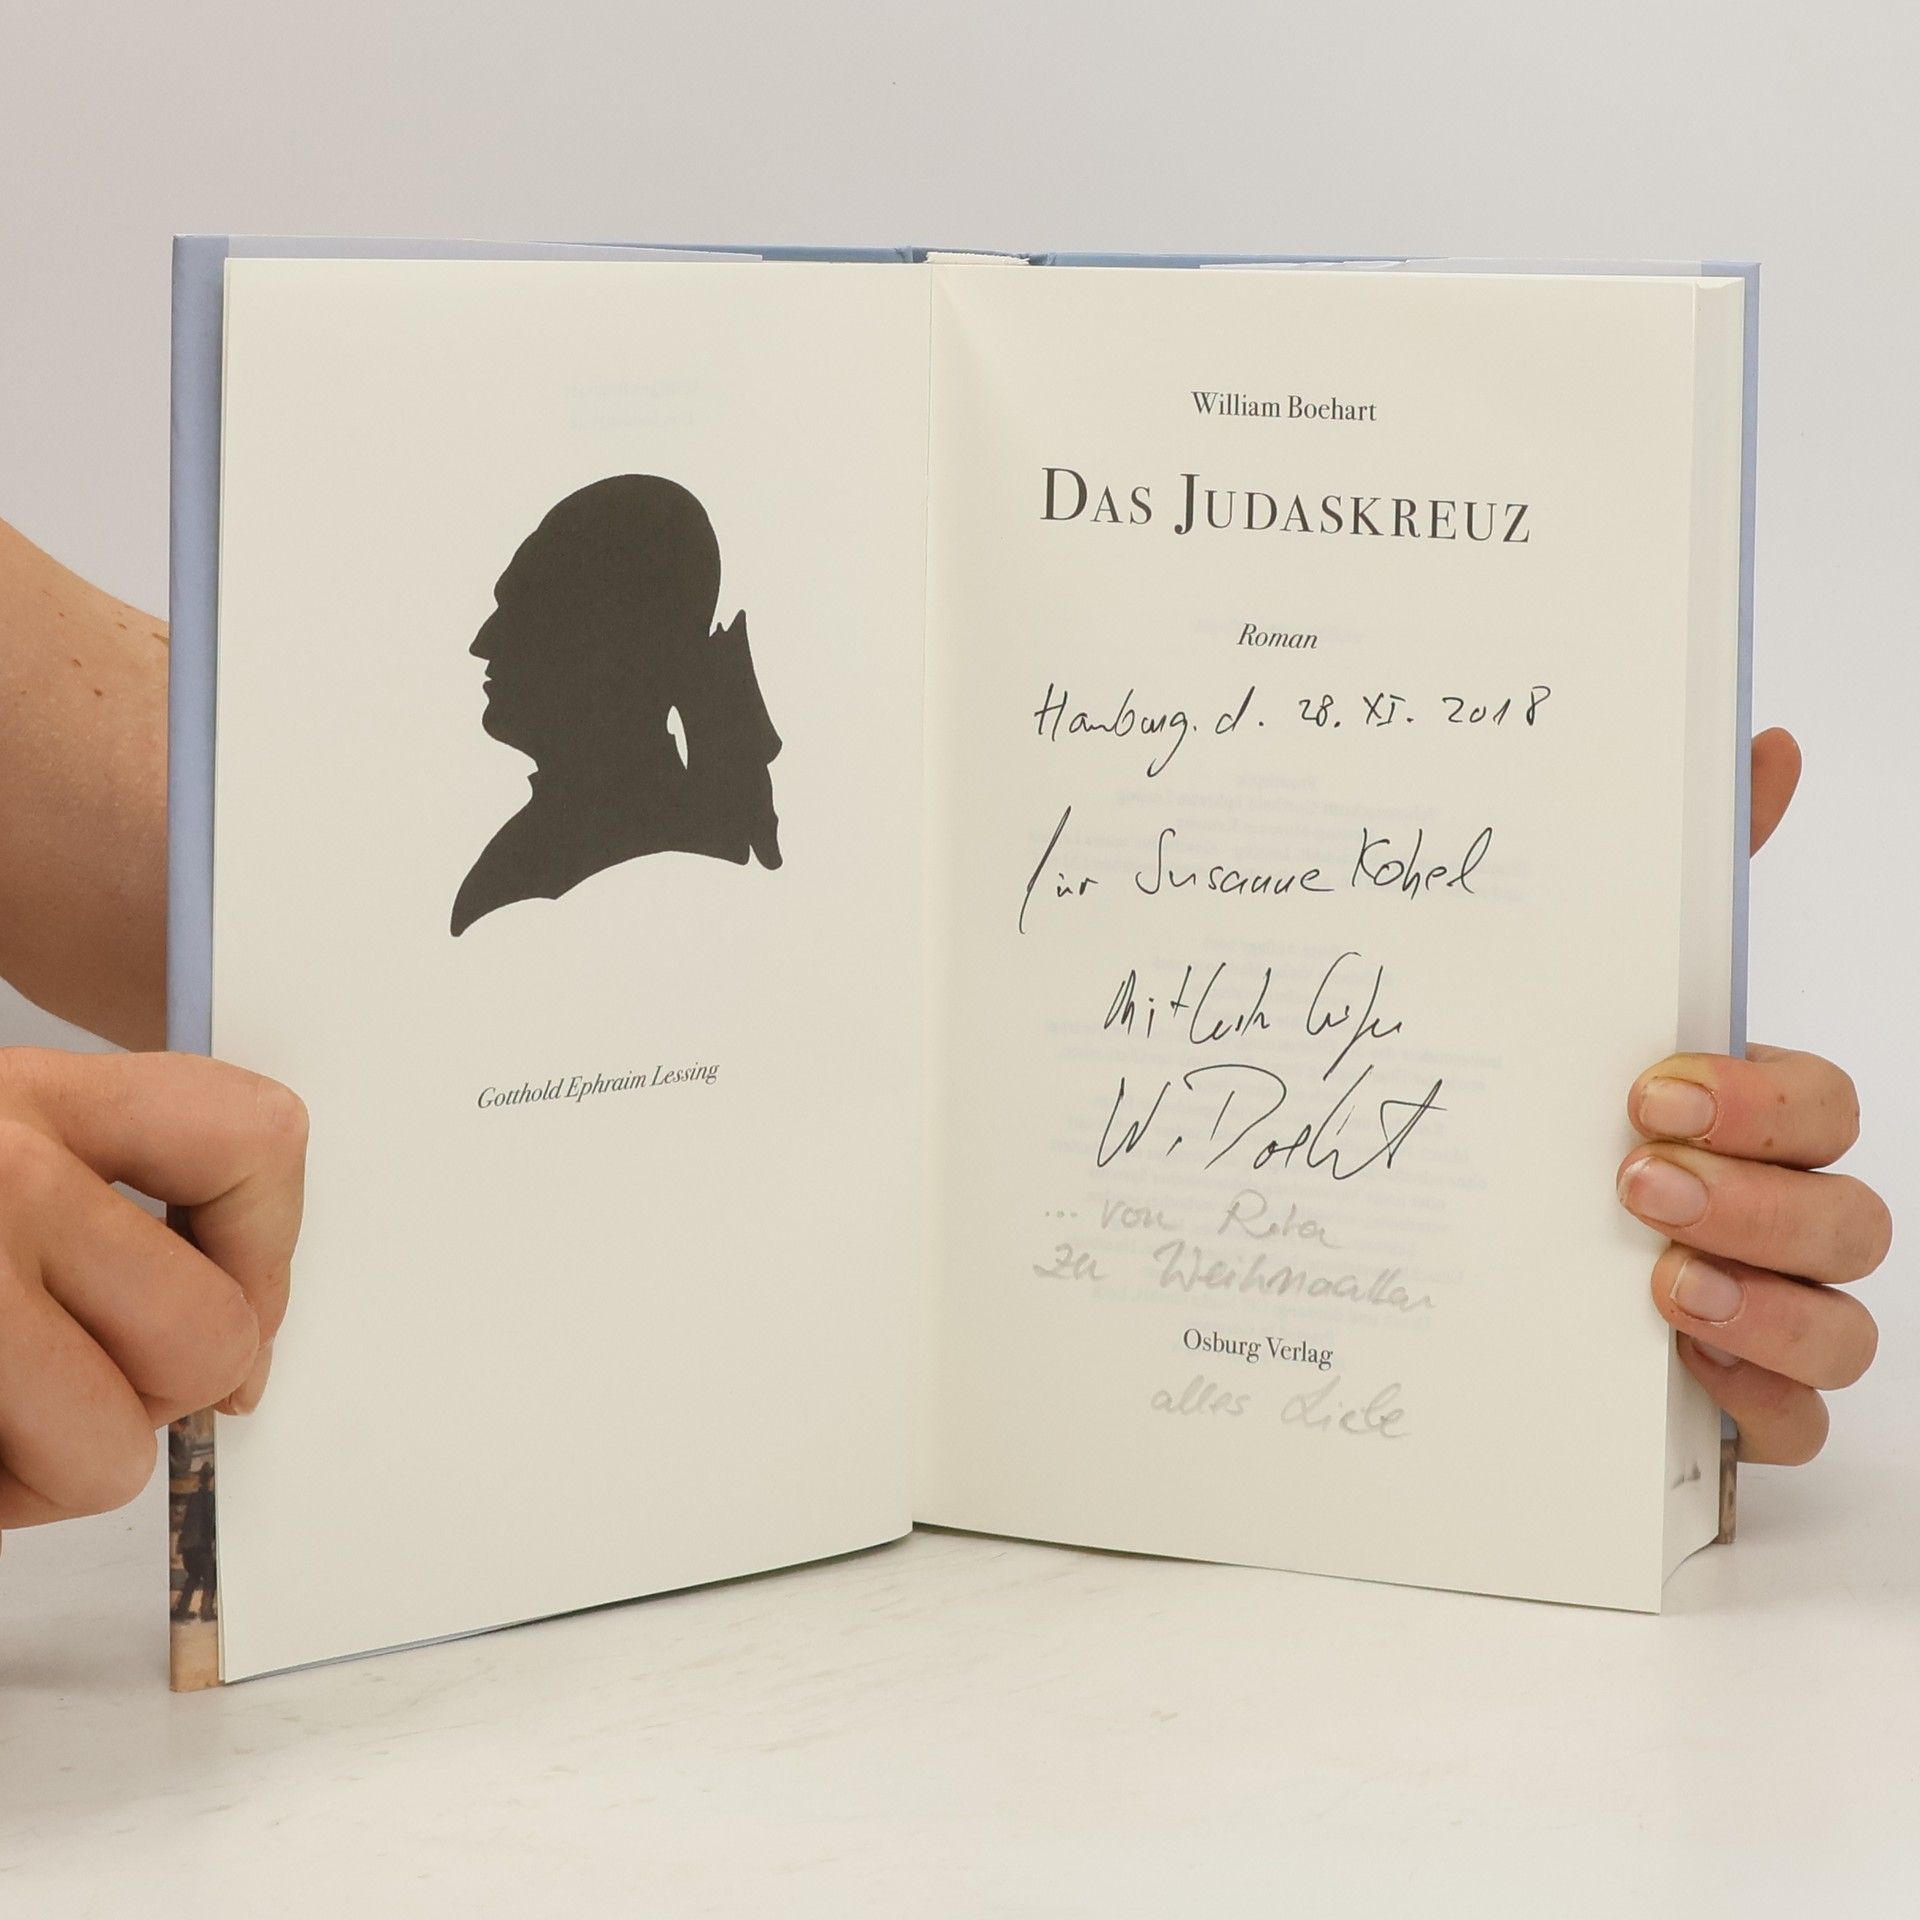 Gotthold Ephraim Lessing
William Boehart
DAS JUDASKREUZ
Roman
Hamburg. d. 28. XI. 2018
für Susanne Kohel
Mit
W. Boehart
... von Rita
zu Weihnachten
Osburg Verlag
alles Liebe